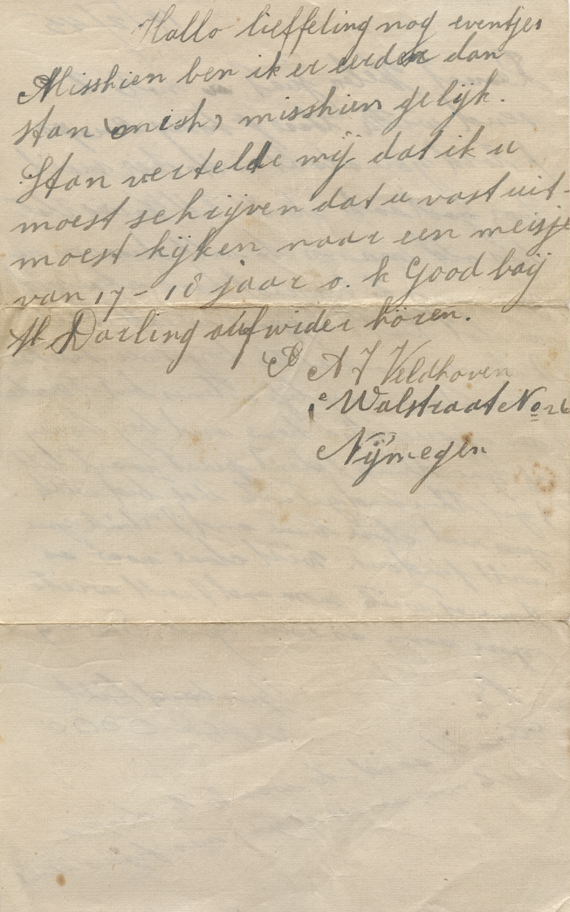 Hallo lieffeling nog eventjes
Misshien ben ik er eerder dan
Stan (misch) misshien gelijk.
Stan vertelde mij dat ik u
moest schrijven dat u vast uit-
moest kijken naar een meisje
van 17 - 18 jaar o. k Good baij
M Darling aufwider hören.
A J Veldhoven
Walstraat No 26
Nijmegen